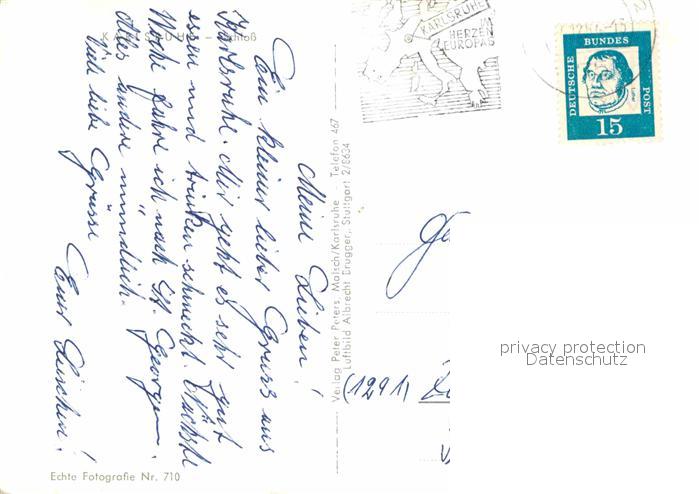 KARLSRUHE – Schloß
Meine Lieben!
Ein kleiner lieber Gruss aus
Karlsruhe. Mir geht es sehr gut
essen und trinken schmeckt. Nächste
Woche fahre ich nach St. Georgen.
Alles andere mündlich.
Viele liebe Grüsse
Eure Luischen!
Echte Fotografie Nr. 710
Verlag Peter Peters, Malsch/Karlsruhe Telefon 467
Luftbild Albrecht Brugger, Stuttgart 2/8634
KARLSRUHE
IM
HERZEN
EUROPAS
DEUTSCHE BUNDES POST
Luther
15
(1291)
privacy protection
Datenschutz